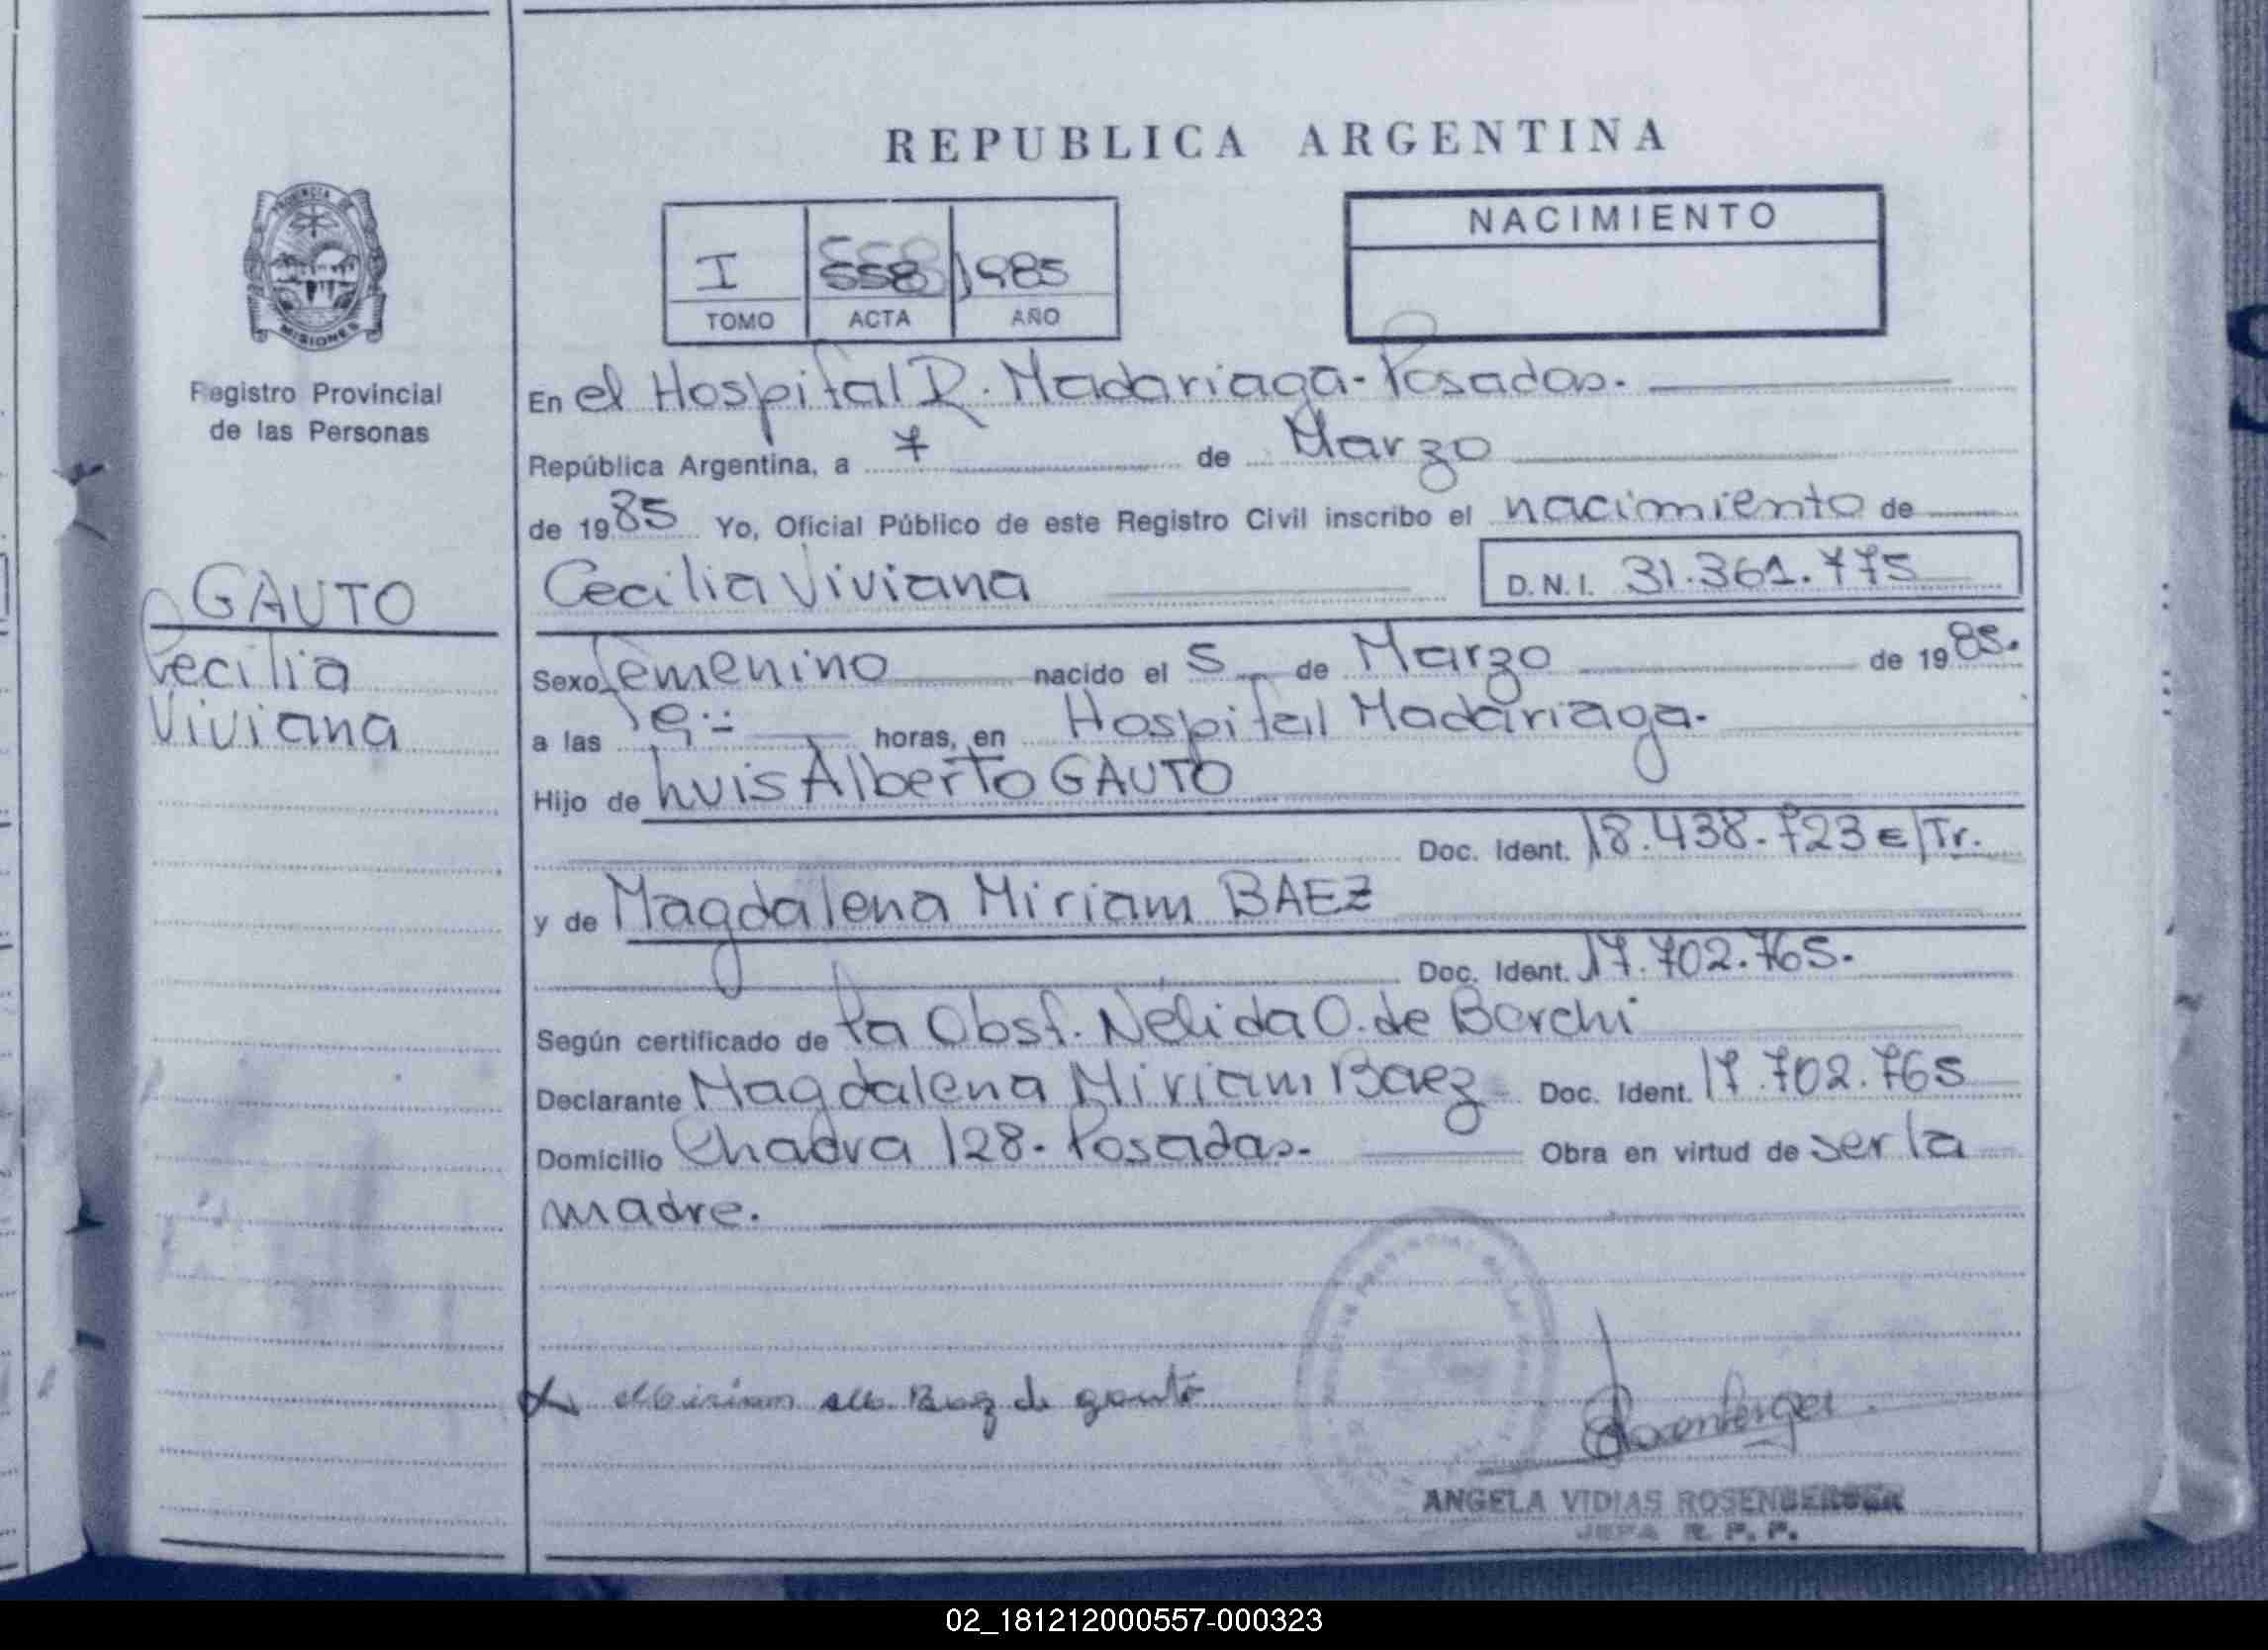 REPUBLICA ARGENTINA
PROVINCIA DE
MISIONES
Registro Provincial
de las Personas
I 558 1985
TOMO ACTA AÑO
NACIMIENTO
En el Hospital R. Madariaga - Posadas.
República Argentina, a 7 de Marzo
de 1985 Yo, Oficial Público de este Registro Civil inscribo el nacimiento de
GAUTO
Cecilia
Viviana
Cecilia Viviana D.N.I. 31.361.775
Sexo femenino nacido el 5 de Marzo de 1985.
a las horas, en Hospital Madariaga.
Hijo de Luis Alberto GAUTO
Doc. Ident. 18.438.723 e/Tr.
y de Magdalena Miriam BAEZ
Doc. Ident. 17.702.765.
Según certificado de la Obst. Nélida O. de Borchi
Declarante Magdalena Miriam Baez Doc. Ident. 17.702.765
Domicilio 128 - Posadas. Obra en virtud de ser la
madre.
Miriam M. Baez de gauto
ANGELA VIDIAS ROSENBERGER
JEFA R. P. P.
02_181212000557-000323